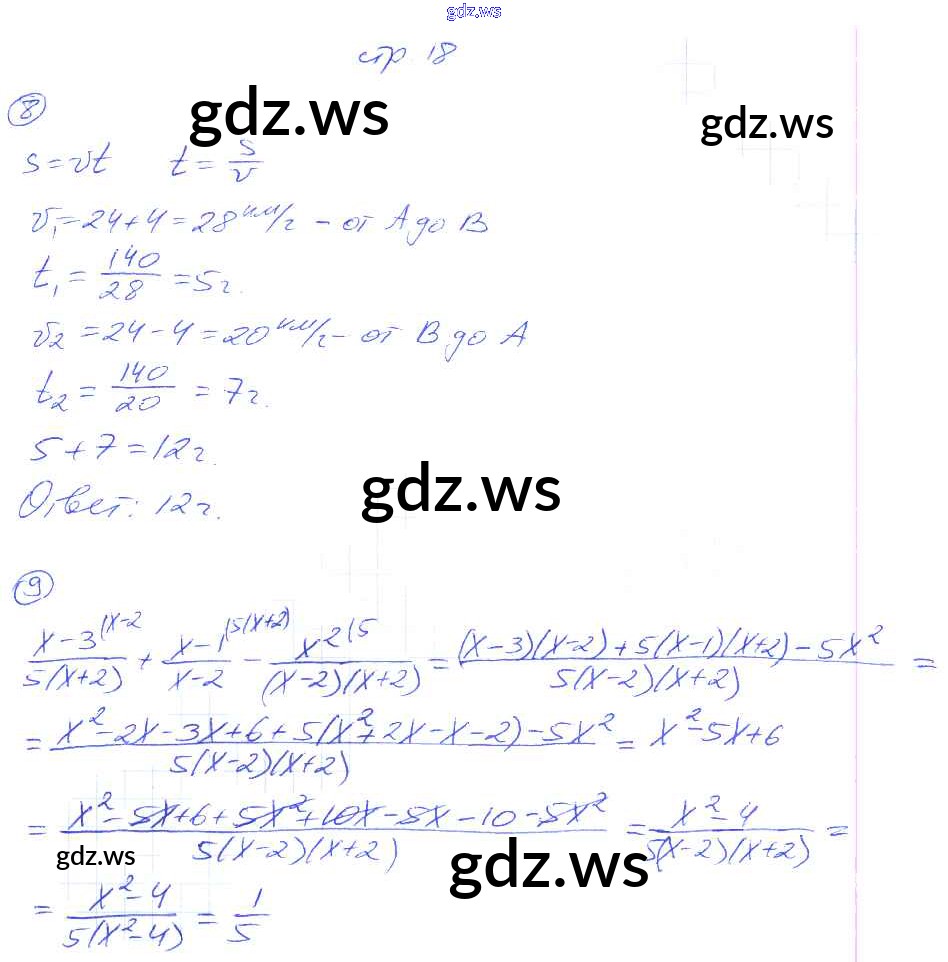 gdz.ws
стр. 18
gdz.ws
gdz.ws
8
s = vt   t = s/v
v₁ = 24 + 4 = 28 км/ч – от А до В
t₁ = 140/28 = 5 ч.
v₂ = 24 – 4 = 20 км/ч – от В до А
t₂ = 140/20 = 7 ч.
5 + 7 = 12 ч.
gdz.ws
Ответ: 12 ч.
9
x – 3 (x – 2 / 5(x+2) + x – 1 (5(x+2) / x – 2 – x² (5 / (x–2)(x+2) = (x–3)(x–2) + 5(x–1)(x+2) – 5x² / 5(x–2)(x+2) =
= x² – 2x – 3x + 6 + 5(x² + 2x – x – 2) – 5x² / 5(x–2)(x+2) = x² – 5x + 6
= x² – 5x + 6 + 5x² + 10x – 5x – 10 – 5x² / 5(x–2)(x+2) = x² – 4 / 5(x–2)(x+2) =
gdz.ws
gdz.ws
= x² – 4 / 5(x² – 4) = 1/5